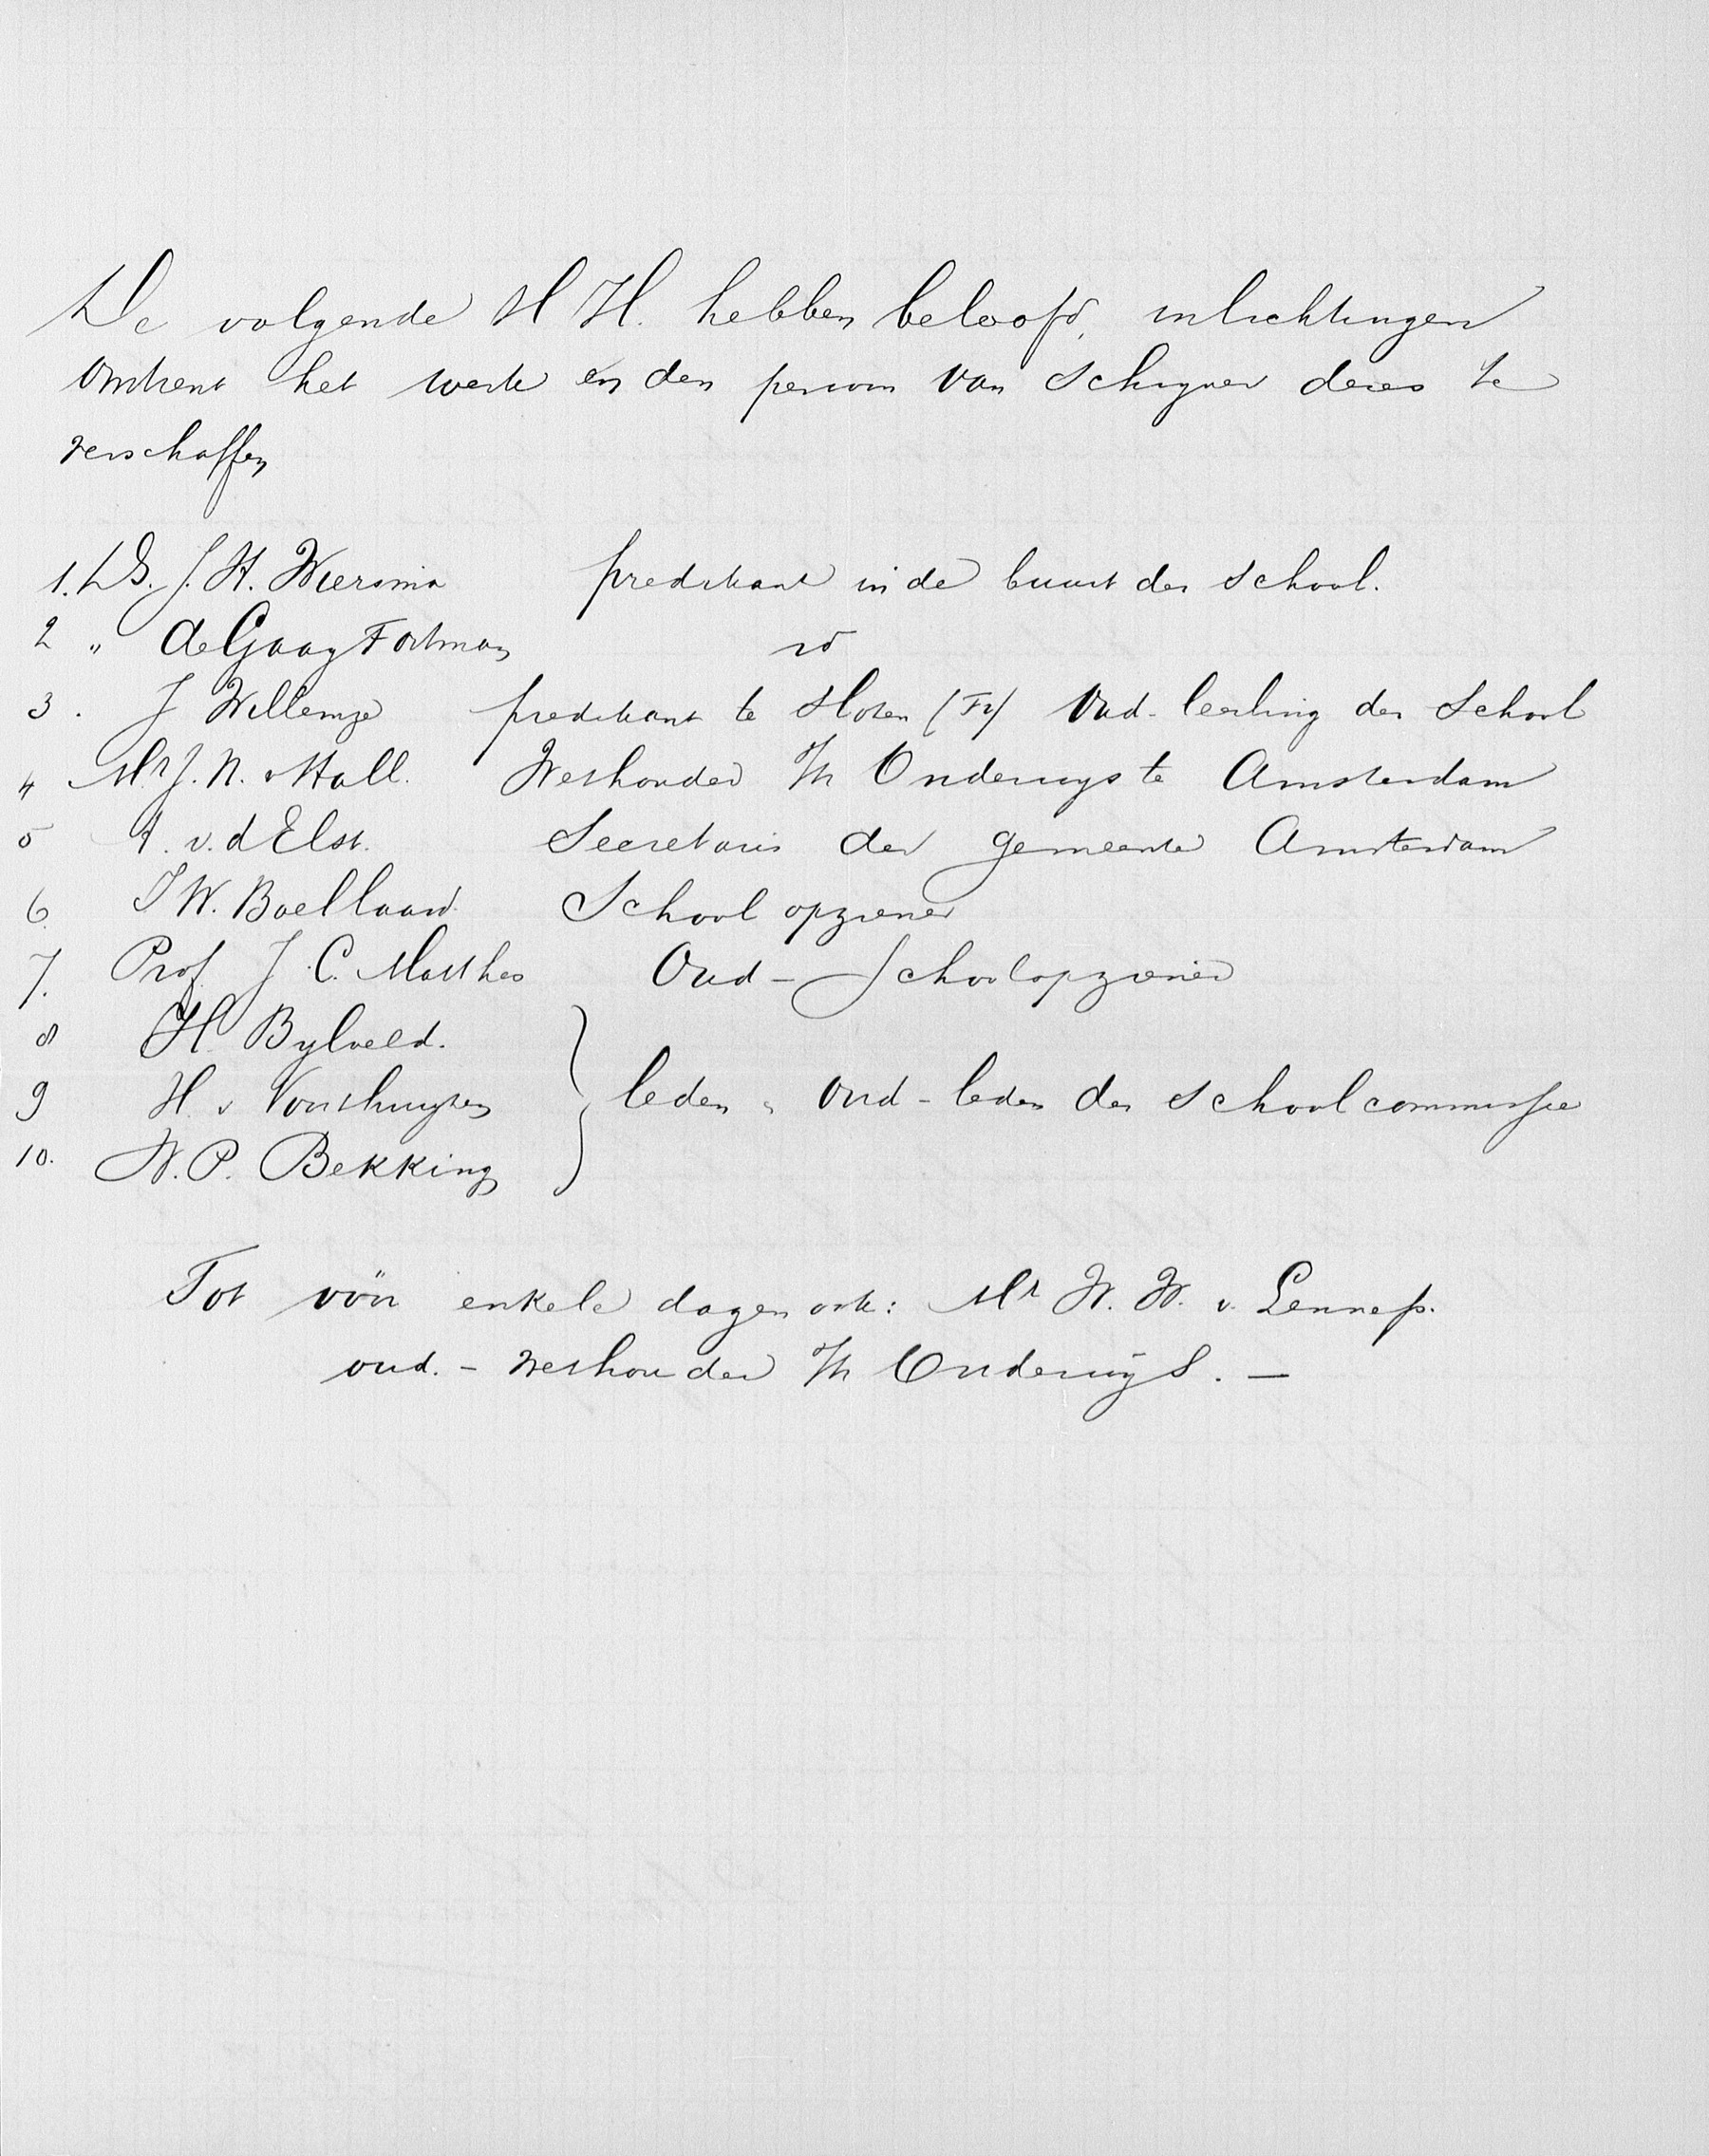 De volgende H H. hebben beloofd, inlichtingen
omtrent het werk en den persoon van Schryver dezes te
verschaffen
1. DS. J. H. Wiersma predikant in de buurt der School.
2 „ de Gaay Fortman id
3. J Willemze predikant te Sloten (Fr) Oud-leerling der School
4 Mr J. N. v Hall. Wethouder v/h Onderwys te Amsterdam
5 A. v. d Elst. Secretaris der gemeente Amsterdam
6. J W. Boellaard. School opziener
7. Prof. J. C. Matthes Oud-Schoolopziener
8 H. Bylveld.
9 H. v Vonthuyzen } leden & Oud-leden der Schoolcommissie
10. N. P. Bekking
Tot vóór enkele dagen ook: Mr W. W. v. Lennep.
oud.- wethouder v/h Onderwys. —